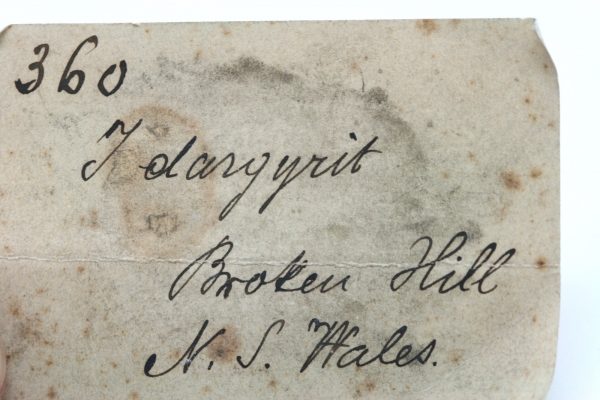 360
Idargyrit
Broken Hill
N. S. Wales.